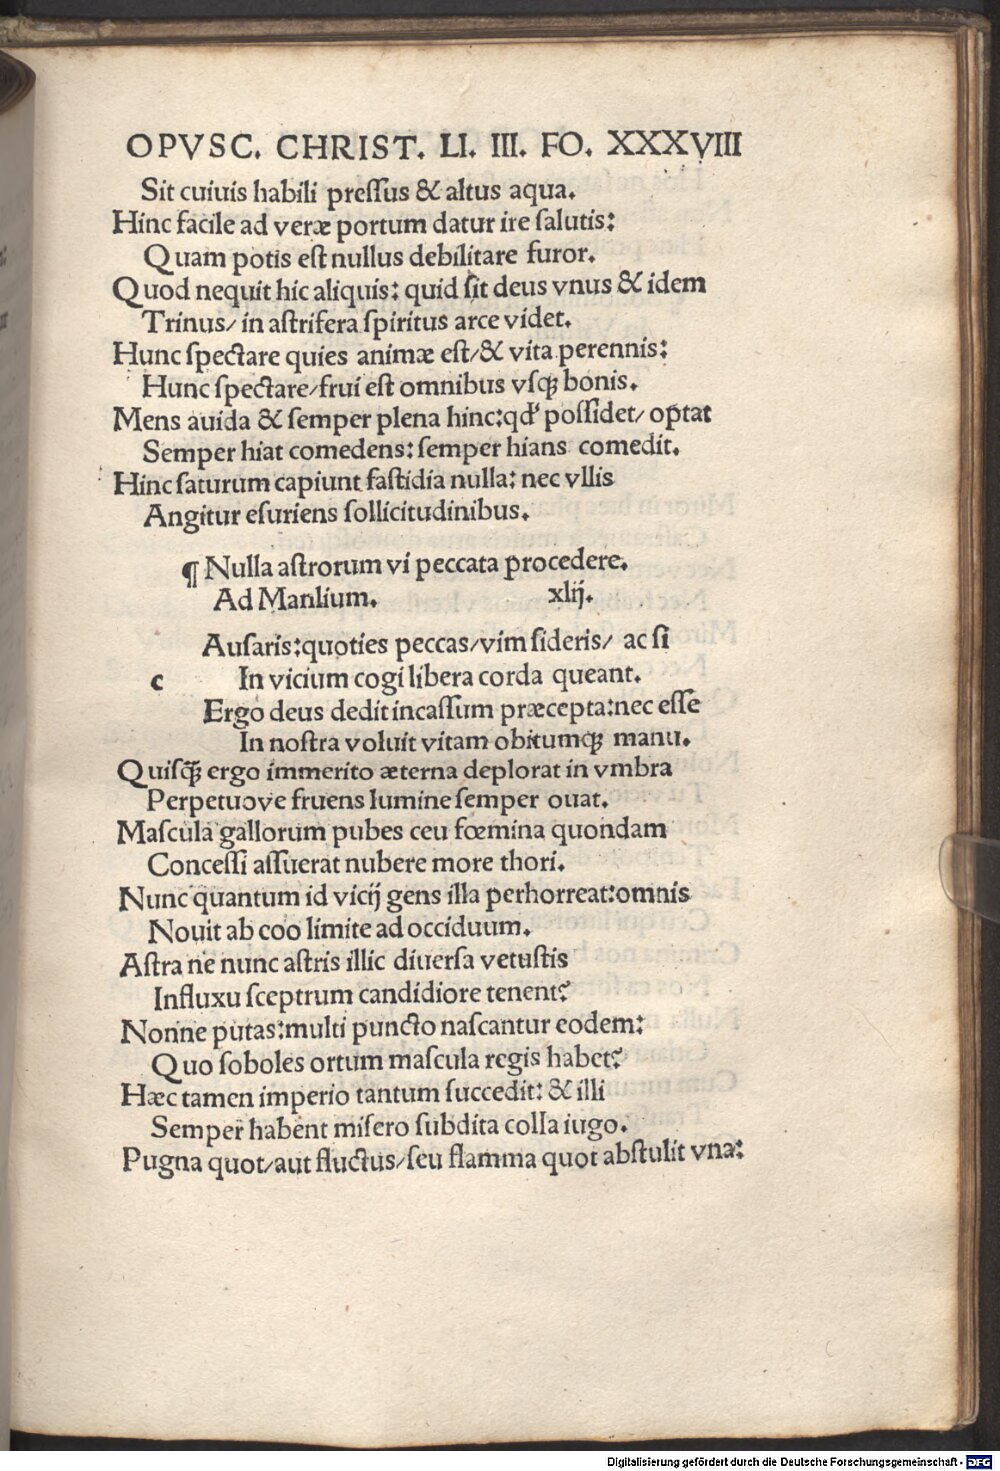 OPVSC. CHRIST. LI. III. FO. XXXVIII
Sit cuiuis habili preſſus & altus aqua.
Hinc facile ad veræ portum datur ire ſalutis:
Quam potis eſt nullus debilitare furor.
Quod nequit hic aliquis: quid ſit deus vnus & idem
Trinus/ in aſtrifera ſpiritus arce videt.
Hunc ſpectare quies animæ eſt/& vita perennis:
Hunc ſpectare/frui eſt omnibus vſqꝫ bonis.
Mens auida & ſemper plena hinc:qd' poſſidet/ optat
Semper hiat comedens: ſemper hians comedit.
Hinc ſaturum capiunt faſtidia nulla: nec vllis
Angitur eſuriens ſollicitudinibus.
¶ Nulla aſtrorum vi peccata procedere.
Ad Manlium. xlij.
Auſaris:quoties peccas/vim ſideris/ ac ſi
c In vicium cogi libera corda queant.
Ergo deus dedit incaſſum præcepta:nec eſſe
In noſtra voluit vitam obitumqꝫ manu.
Quiſqꝫ̃ ergo immerito æterna deplorat in vmbra
Perpetuove fruens lumine ſemper ouat.
Maſcula gallorum pubes ceu fœmina quondam
Conceſſi aſſuerat nubere more thori.
Nunc quantum id vicij gens illa perhorreat:omnis
Nouit ab eoo limite ad occiduum.
Aſtra ne nunc aſtris illic diuerſa vetuſtis
Influxu ſceptrum candidiore tenent?
Nonne putas:multi puncto naſcantur eodem:
Quo ſoboles ortum maſcula regis habet?
Hæc tamen imperio tantum ſuccedit: & illi
Semper habent miſero ſubdita colla iugo.
Pugna quot/aut fluctus/ſeu flamma quot abſtulit vna:
Digitalisierung gefördert durch die Deutsche Forschungsgemeinschaft - DFG